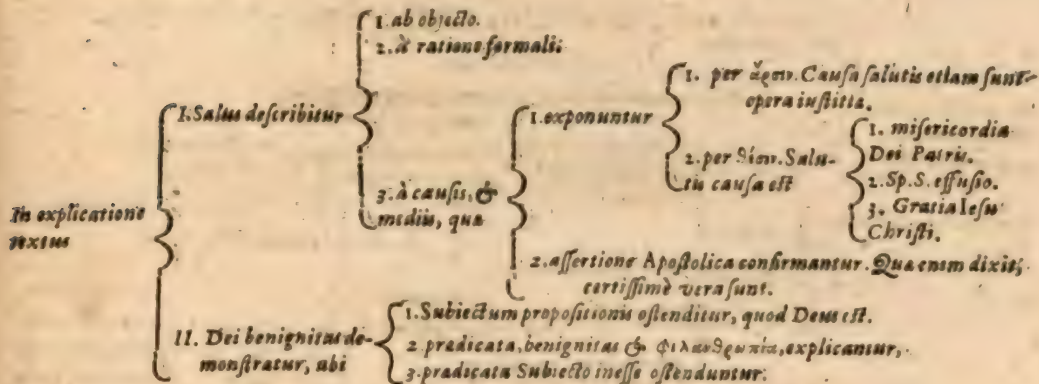 In explicatione
textus
I. Salus describitur
1. ab objecto.
2. à ratione formali:
3. à causis, &
mediis, quæ
1. exponuntur
1. per ἄρσιν. Causa salutis etiam sunt
opera iustitiæ.
2. per θέσιν. Salu-
tis causa est
1. misericordia
Dei Patris.
2. Sp. S. effusio.
3. Gratia Iesu
Christi.
2. assertione Apostolica confirmantur. Quæ enim dixit,
certissimè vera sunt.
II. Dei benignitas de-
monstratur, ubi
1. Subiectum propositionis ostenditur, quod Deus est.
2. prædicata, benignitas & φιλανθρωπία, explicantur,
3. prædicata Subiecto inesse ostenduntur.